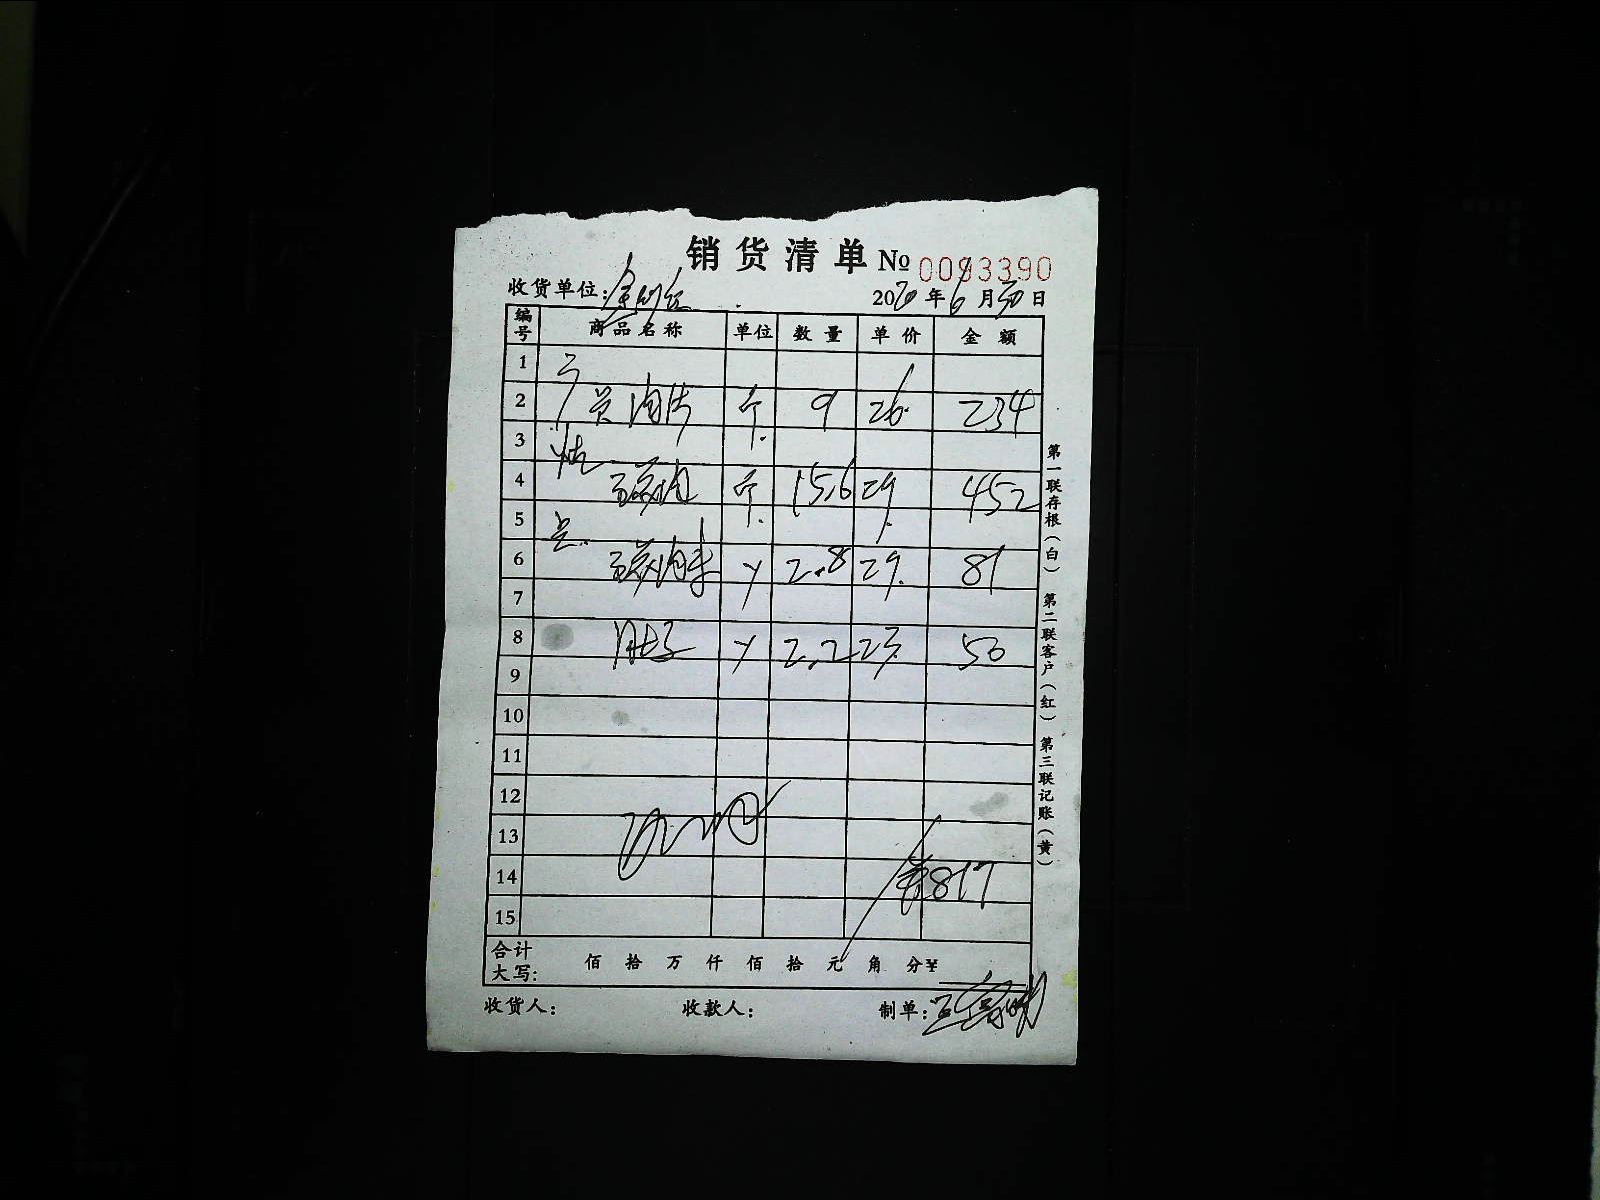 销货清单 № 0093390
收货单位: 2020年6月30日
编号 商品名称 单位 数量 单价 金额
1
2 肉片 斤 9 26 234
3
4 斤 15.6 29. 452
5
6 2.8 29. 81
7
8 肚子 2.2 23. 50
9
10
11
12
13
14 817
15
合计大写: 佰 拾 万 仟 佰 拾 元 角 分 ¥
收货人: 收款人: 制单:
第一联存根(白) 第二联客户(红) 第三联记账(黄)